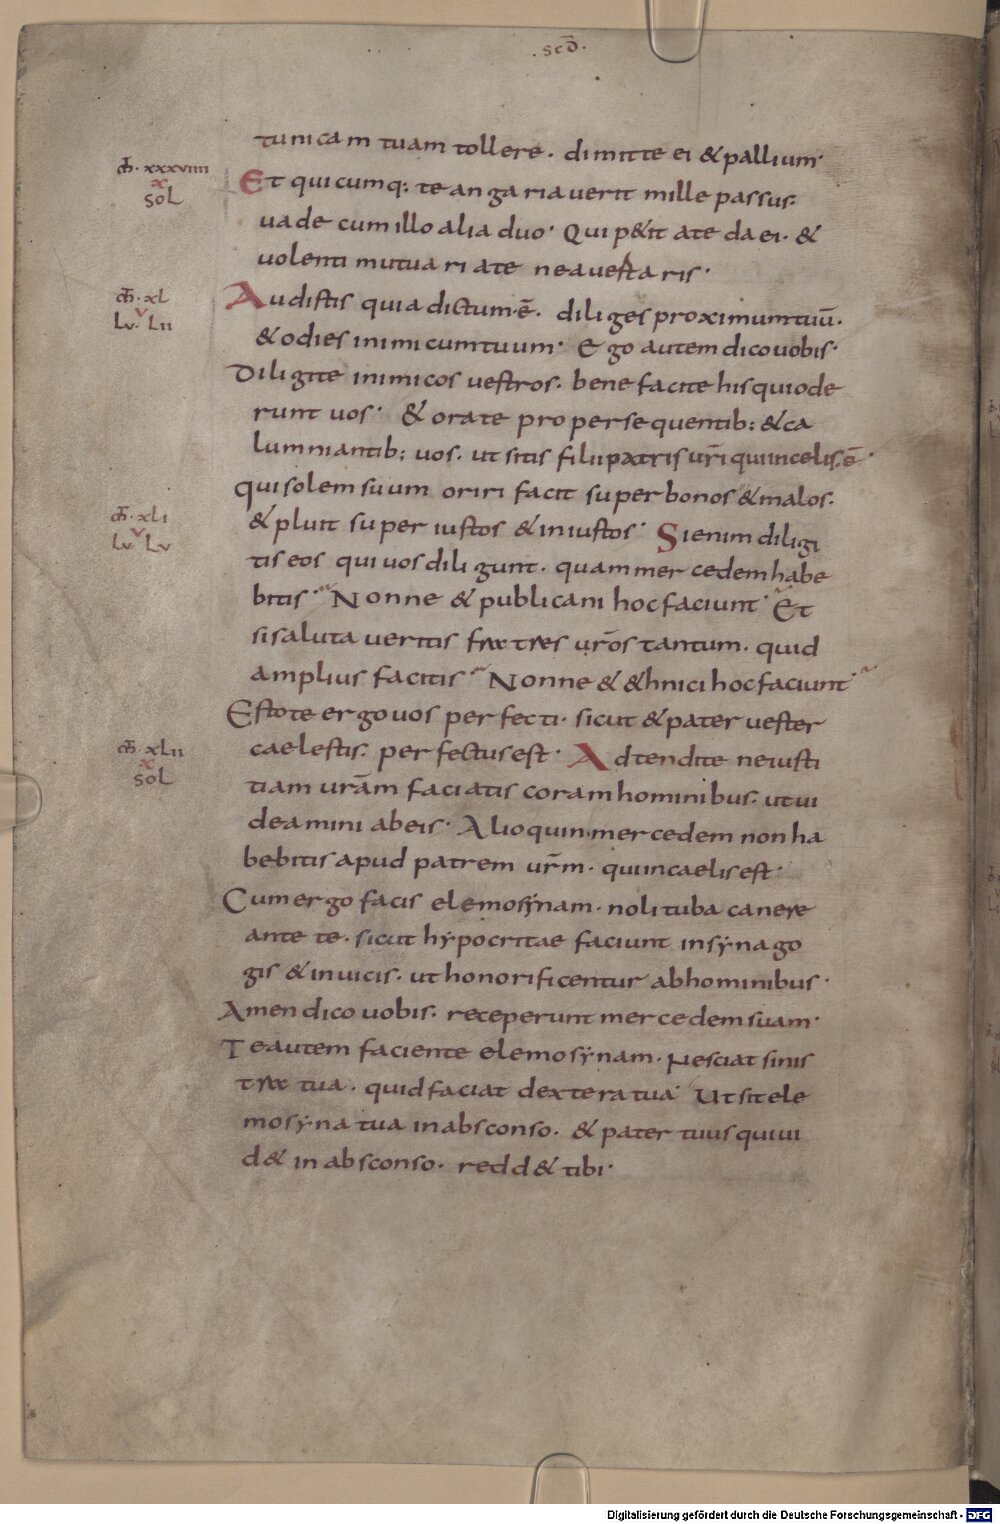 .scd̄.
tunicam tuam tollere. dimitte ei & pallium.
m̄t. xxxviiii
x
sol
Et quicumq; te angariaverit mille passus.
vade cum illo alia duo. Qui p&it a te da ei. &
volenti mutuari a te ne avertaris.
m̄t. xl
v
Lv. Lii
Audistis quia dictum ē. diliges proximum tuū.
& odies inimicum tuum. Ego autem dico vobis.
Diligite inimicos vestros. benefacite his qui ode
runt vos. & orate pro persequentib; & ca
lumniantib; vos. ut sitis filii patris vr̄i qui in celis ē.
qui solem suum oriri facit super bonos & malos.
m̄t. xli
v
Lv Lv
& pluit super iustos & iniustos. Si enim diligi
tis eos qui vos diligunt. quam mercedem habe
bitis. Nonne & publicani hoc faciunt. Et
si salutaveritis fratres vr̄os tantum. quid
amplius facitis. Nonne & &hnici hoc faciunt.
Estote ergo vos perfecti. sicut & pater vester
m̄t. xlii
x
sol
caelestis. perfectus est. Adtendite ne iusti
tiam vrām faciatis coram hominibus. ut vi
deamini ab eis. Alioquin mercedem non ha
bebitis apud patrem vr̄m. qui in caelis est.
Cum ergo facis elemosynam. noli tuba canere
ante te. sicut hypocritae faciunt in synago
gis & in vicis. ut honorificentur ab hominibus.
Amen dico vobis. receperunt mercedem suam.
Te autem faciente elemosynam. Nesciat sinis
tra tua. quid faciat dextera tua. Ut sit ele
mosyna tua in absconso. & pater tuus qui vi
d& in absconso. redd& tibi.
Digitalisierung gefördert durch die Deutsche Forschungsgemeinschaft - DFG